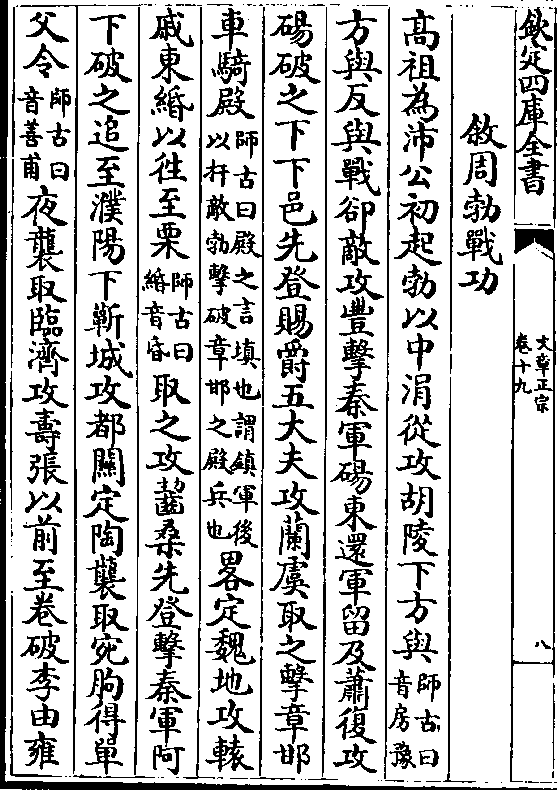 欽定四庫全書
文章正宗
卷十九
八
敘周勃戰功
高祖為沛公初起勃以中涓從攻胡陵下方與師古曰音房豫
方與反與戰卻敵攻豐擊秦軍碭東還軍留及蕭復攻
碭破之下下邑先登賜爵五大夫攻蘭虞取之擊章邯
車騎殿師古曰殿之言填也謂鎮軍後以扞敵勃擊破章邯之殿兵也畧定魏地攻轅
戚東緡以徃至栗師古曰緡音昏取之攻齧桑先登擊秦軍阿
下破之追至濮陽下蘄城攻都關定陶襲取宛朐得單
父令師古曰音善甫夜襲取臨濟攻壽張以前至卷破李由雍